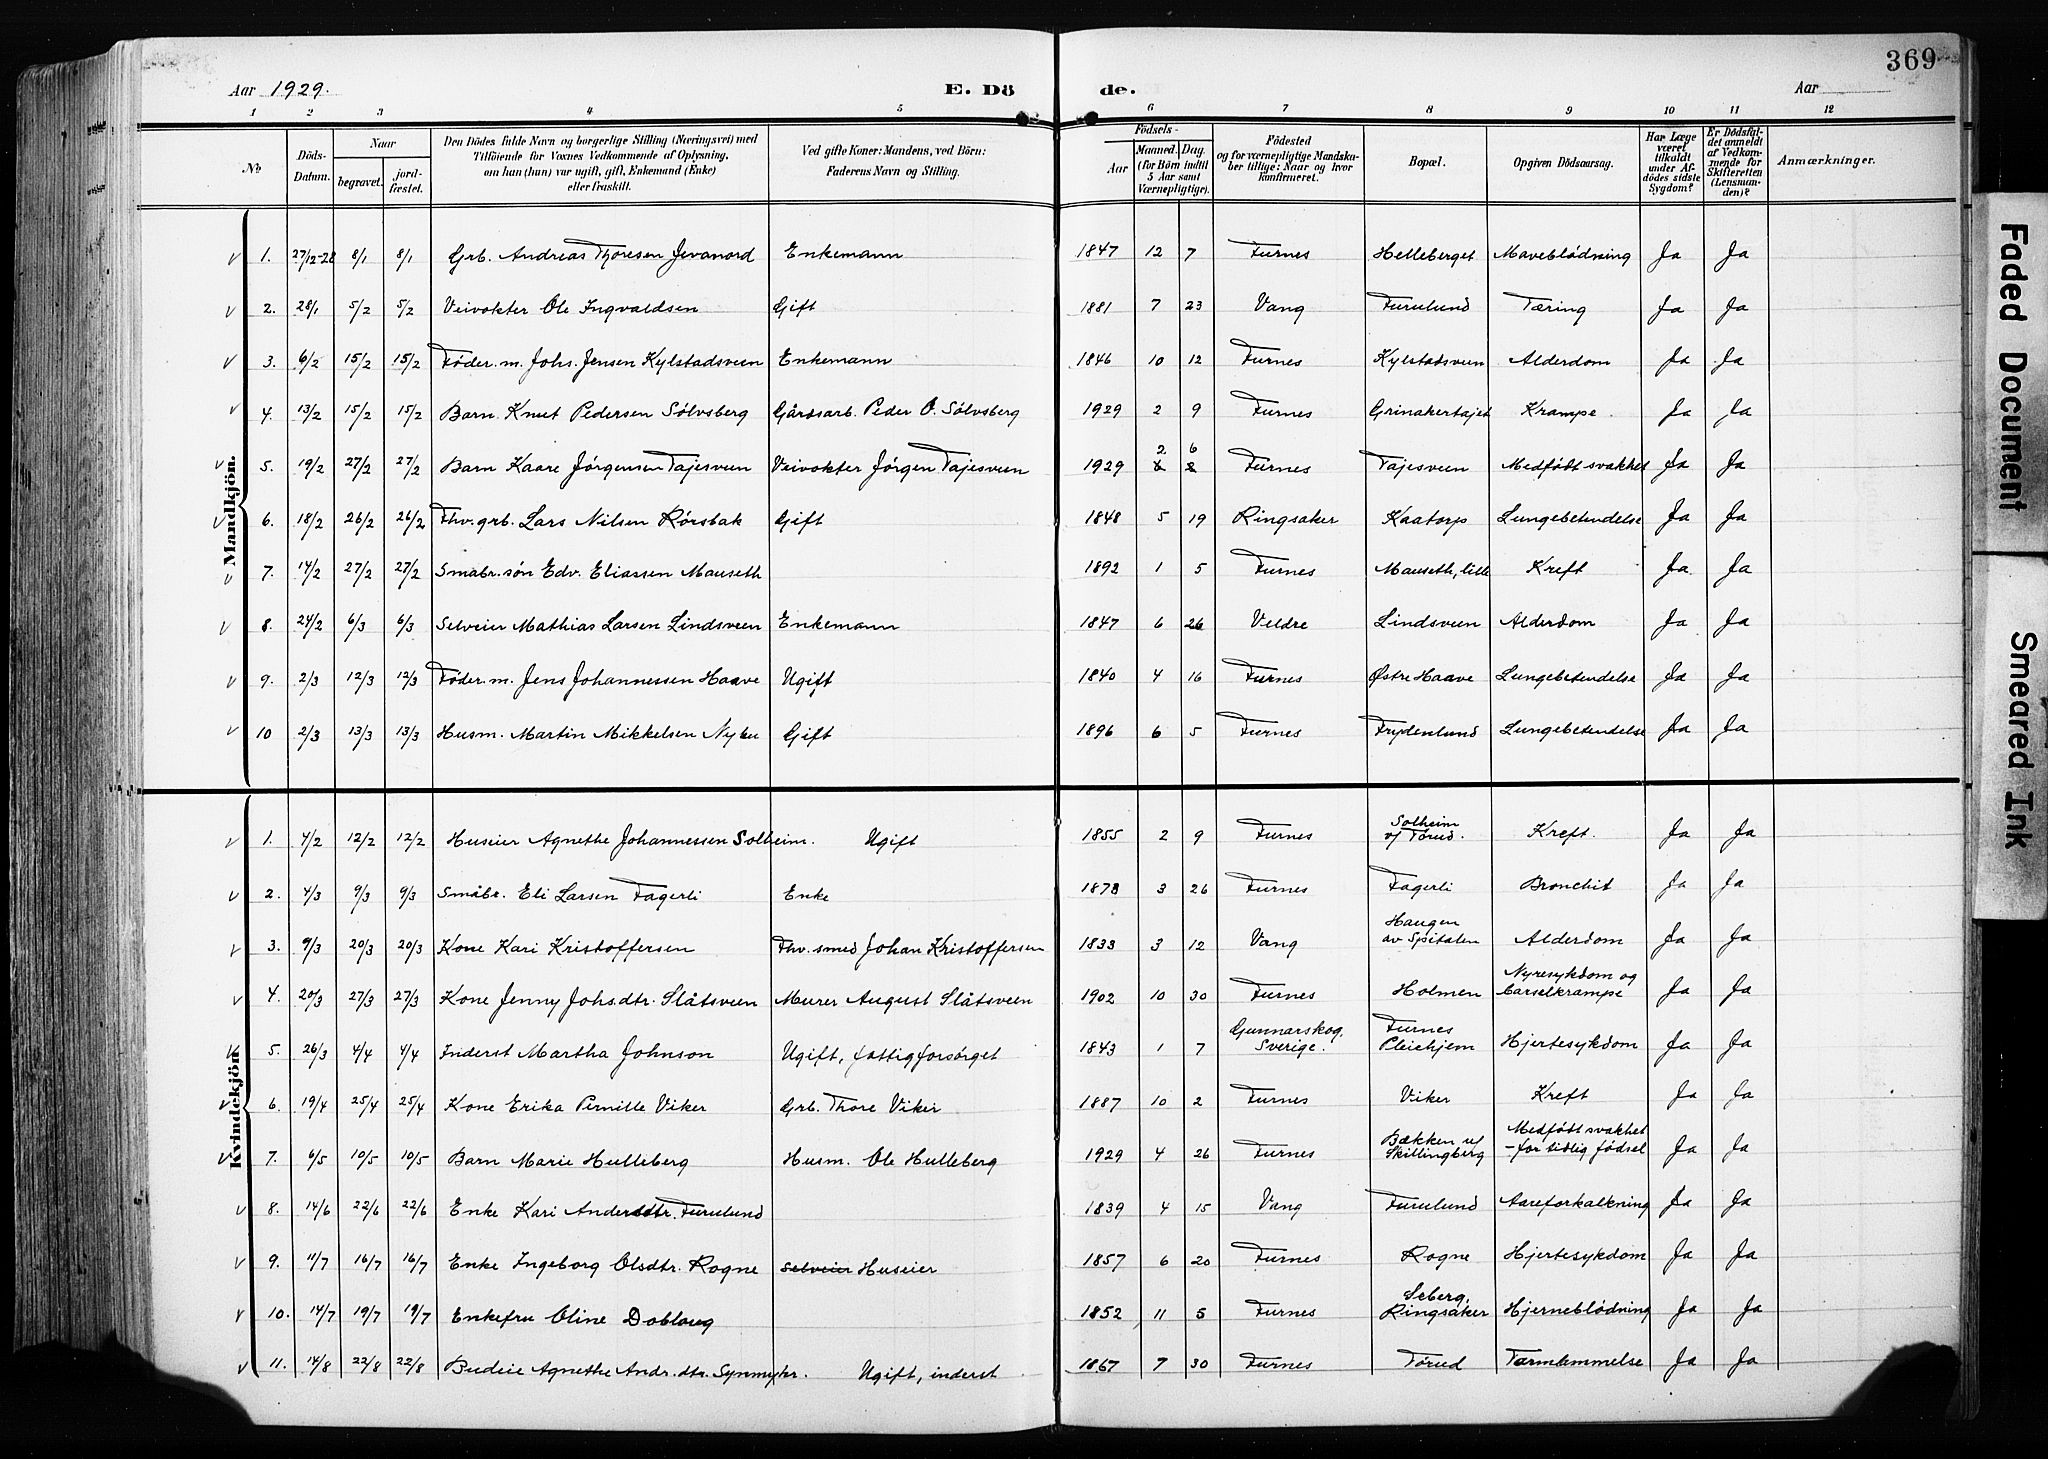 369
Aar 1929. E. Dö de. Aar
1 2 3 4 5 6 7 8 9 10 11 12
No
Döds-Datum.
Naar
begravet.
jord-fæstet.
Den Dödes fulde Navn og borgerlige Stilling (Næringsvei) med
Tilföiende for Voxnes Vedkommende af Oplysning,
om han (hun) var ugift, gift, Enkemand (Enke)
eller fraskilt.
Ved gifte Koner: Mandens, ved Börn:
Faderens Navn og Stilling.
Födsels-
Aar
Maaned. Dag.
(for Börn indtil
5 Aar samt
Værnepligtige).
Födested
og for værnepligtige Mandska-
ber tillige: Naar og hvor
konfirmeret.
Bopæl.
Opgiven Dödsaarsag.
Har Læge
været
tilkaldt
under Af-
dödes sidste
Sygdom?
Er Dödsfal-
det anmeldt
af Vedkom-
mende for
Skifteretten
(Lensman-
den)?
Anmærkninger.
Mandkjön.
1. 27/12-28 8/1 8/1 Grb. Andreas Thoresen Jevanord Enkemann 1847 12 7 Furnes Helleberget Maveblödning Ja Ja
2. 28/1 5/2 5/2 Veivokter Ole Ingvaldsen Gift 1881 7 23 Vang Furulund Tæring Ja Ja
3. 6/2 15/2 15/2 Föder.m. Johs. Jensen Kylstadsveen Enkemann 1846 10 12 Furnes Kylstadsveen Alderdom Ja Ja
4. 13/2 15/2 15/2 Barn Knut Pedersen Sölvsberg Gårdsarb. Peder O. Sölvsberg 1929 2 9 Furnes Grinakertajet Krampe. Ja Ja
5. 19/2 27/2 27/2 Barn Kaare Jörgensen Tajesveen Veivokter Jörgen Tajesveen 1929 2 6 Furnes Tajesveen Medfödt svakhet Ja Ja
6. 18/2 26/2 26/2 Fhv. grb. Lars Nilsen Rörsbak Gift 1848 5 19 Ringsaker Kaatorp Lungebetendelse Ja Ja
7. 14/2 27/2 27/2 Småbr. sön Edv. Eliassen Mauseth 1892 1 5 Furnes Mauseth, lille Kreft Ja Ja
8. 24/2 6/3 6/3 Selveier Mathias Larsen Lindsveen Enkemann 1847 6 26 Veldre Lindsveen Alderdom Ja Ja
9. 2/3 12/3 12/3 Föder.m. Jens Johannessen Haave Ugift 1840 4 16 Furnes Østre Haave Lungebetendelse Ja Ja
10 2/3 13/3 13/3 Husm. Martin Mikkelsen Nybu Gift 1896 6 5 Furnes Frydenlund Lungebetendelse Ja Ja
Kvindekjön.
1. 4/2 12/2 12/2 Huseier Agnethe Johannessen Solheim. Ugift 1855 2 9 Furnes Solheim v/ Törud. Kreft. Ja Ja
2. 4/3 9/3 9/3 Småbr. Eli Larsen Fagerli Enke 1873 3 26 Furnes Fagerli Bronchit Ja Ja
3. 9/3 20/3 20/3 Kone Kari Kristoffersen Fhv. smed Johan Kristoffersen 1833 3 12 Vang Haugen av Spitalen Alderdom Ja Ja
4. 20/3 27/3 27/3 Kone Jenny Johs.dtr. Slåtsveen Murer August Slåtsveen 1902 10 30 Furnes Holmen Nyresykdom og barselkrampe Ja Ja
5. 26/3 4/4 4/4 Inderst Martha Johnson Ugift, fattigforsörget 1843 1 7 Gunnarskog, Sverige. Furnes Pleiehjem Hjertesykdom Ja Ja
6. 19/4 25/4 25/4 Kone Erika Pernille Viker Grb. Thore Viker 1887 10 2 Furnes Viker Kreft Ja Ja
7. 6/5 10/5 10/5 Barn Marie Hulleberg Husm. Ole Hulleberg 1929 4 26 Furnes Bækken u/ Skillingberg Medfödt svakhet - for tidlig födsel Ja Ja
8. 14/6 22/6 22/6 Enke Kari Andersdtr. Furulund 1839 4 15 Vang Furulund Aareforkalkning Ja Ja
9. 11/7 16/7 16/7 Enke Ingeborg Olsdtr. Rogne selveier Huseier 1857 6 20 Furnes Rogne Hjertesykdom Ja Ja
10. 14/7 19/7 19/7 Enkefru Oline Doblaug 1852 11 5 Furnes Seberg, Ringsaker Hjerneblödning Ja Ja
11. 14/8 22/8 22/8 Budeie Agnethe Andr.dtr. Ugift, inderst 1867 7 30 Furnes Törud Ja Ja
Faded Document
Smeared Ink